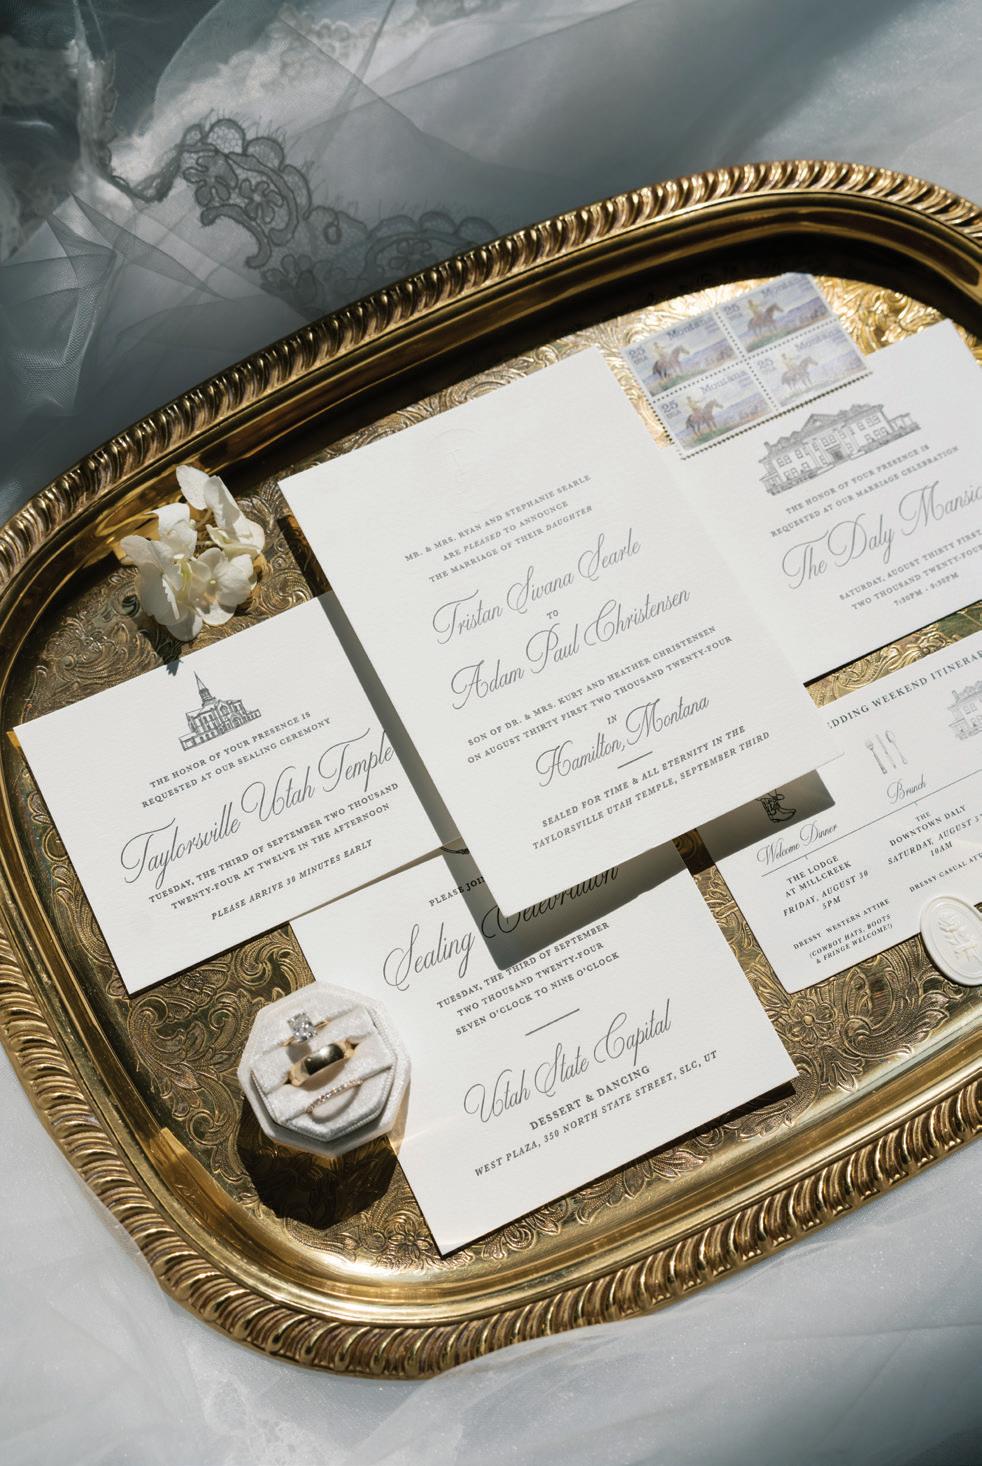 25
Montana
25
25
Montana
25
USA
MR. & MRS. RYAN AND STEPHANIE SEARLE
ARE PLEASED TO ANNOUNCE
THE MARRIAGE OF THEIR DAUGHTER
Tristan Sivana Searle
TO
Adam Paul Christensen
SON OF DR. & MRS. KURT AND HEATHER CHRISTENSEN
ON AUGUST THIRTY FIRST TWO THOUSAND TWENTY-FOUR
IN
Hamilton, Montana
SEALED FOR TIME & ALL ETERNITY IN THE
TAYLORSVILLE UTAH TEMPLE, SEPTEMBER THIRD
THE HONOR OF YOUR PRESENCE IS
REQUESTED AT OUR MARRIAGE CELEBRATION
The Daly Mansio
SATURDAY, AUGUST THIRTY FIRST
TWO THOUSAND TWENTY-FOUR
7:30PM - 9:30PM
THE HONOR OF YOUR PRESENCE IS
REQUESTED AT OUR SEALING CEREMONY
Taylorsville Utah Temple
TUESDAY, THE THIRD OF SEPTEMBER TWO THOUSAND
TWENTY-FOUR AT TWELVE IN THE AFTERNOON
PLEASE ARRIVE 30 MINUTES EARLY
PLEASE JOIN
Sealing Celebration
TUESDAY, THE THIRD OF SEPTEMBER
TWO THOUSAND TWENTY-FOUR
SEVEN O'CLOCK TO NINE O'CLOCK
Utah State Capital
DESSERT & DANCING
WEST PLAZA, 350 NORTH STATE STREET, SLC, UT
EDDING WEEKEND ITINERA
Welcome Dinner
THE LODGE
AT MILLCREEK
FRIDAY, AUGUST 30
5PM
DRESSY WESTERN ATTIRE
(COWBOY HATS, BOOTS
& FRINGE WELCOME!)
Brunch
THE
DOWNTOWN DALY
SATURDAY, AUGUST 3
10AM
DRESSY CASUAL ATT